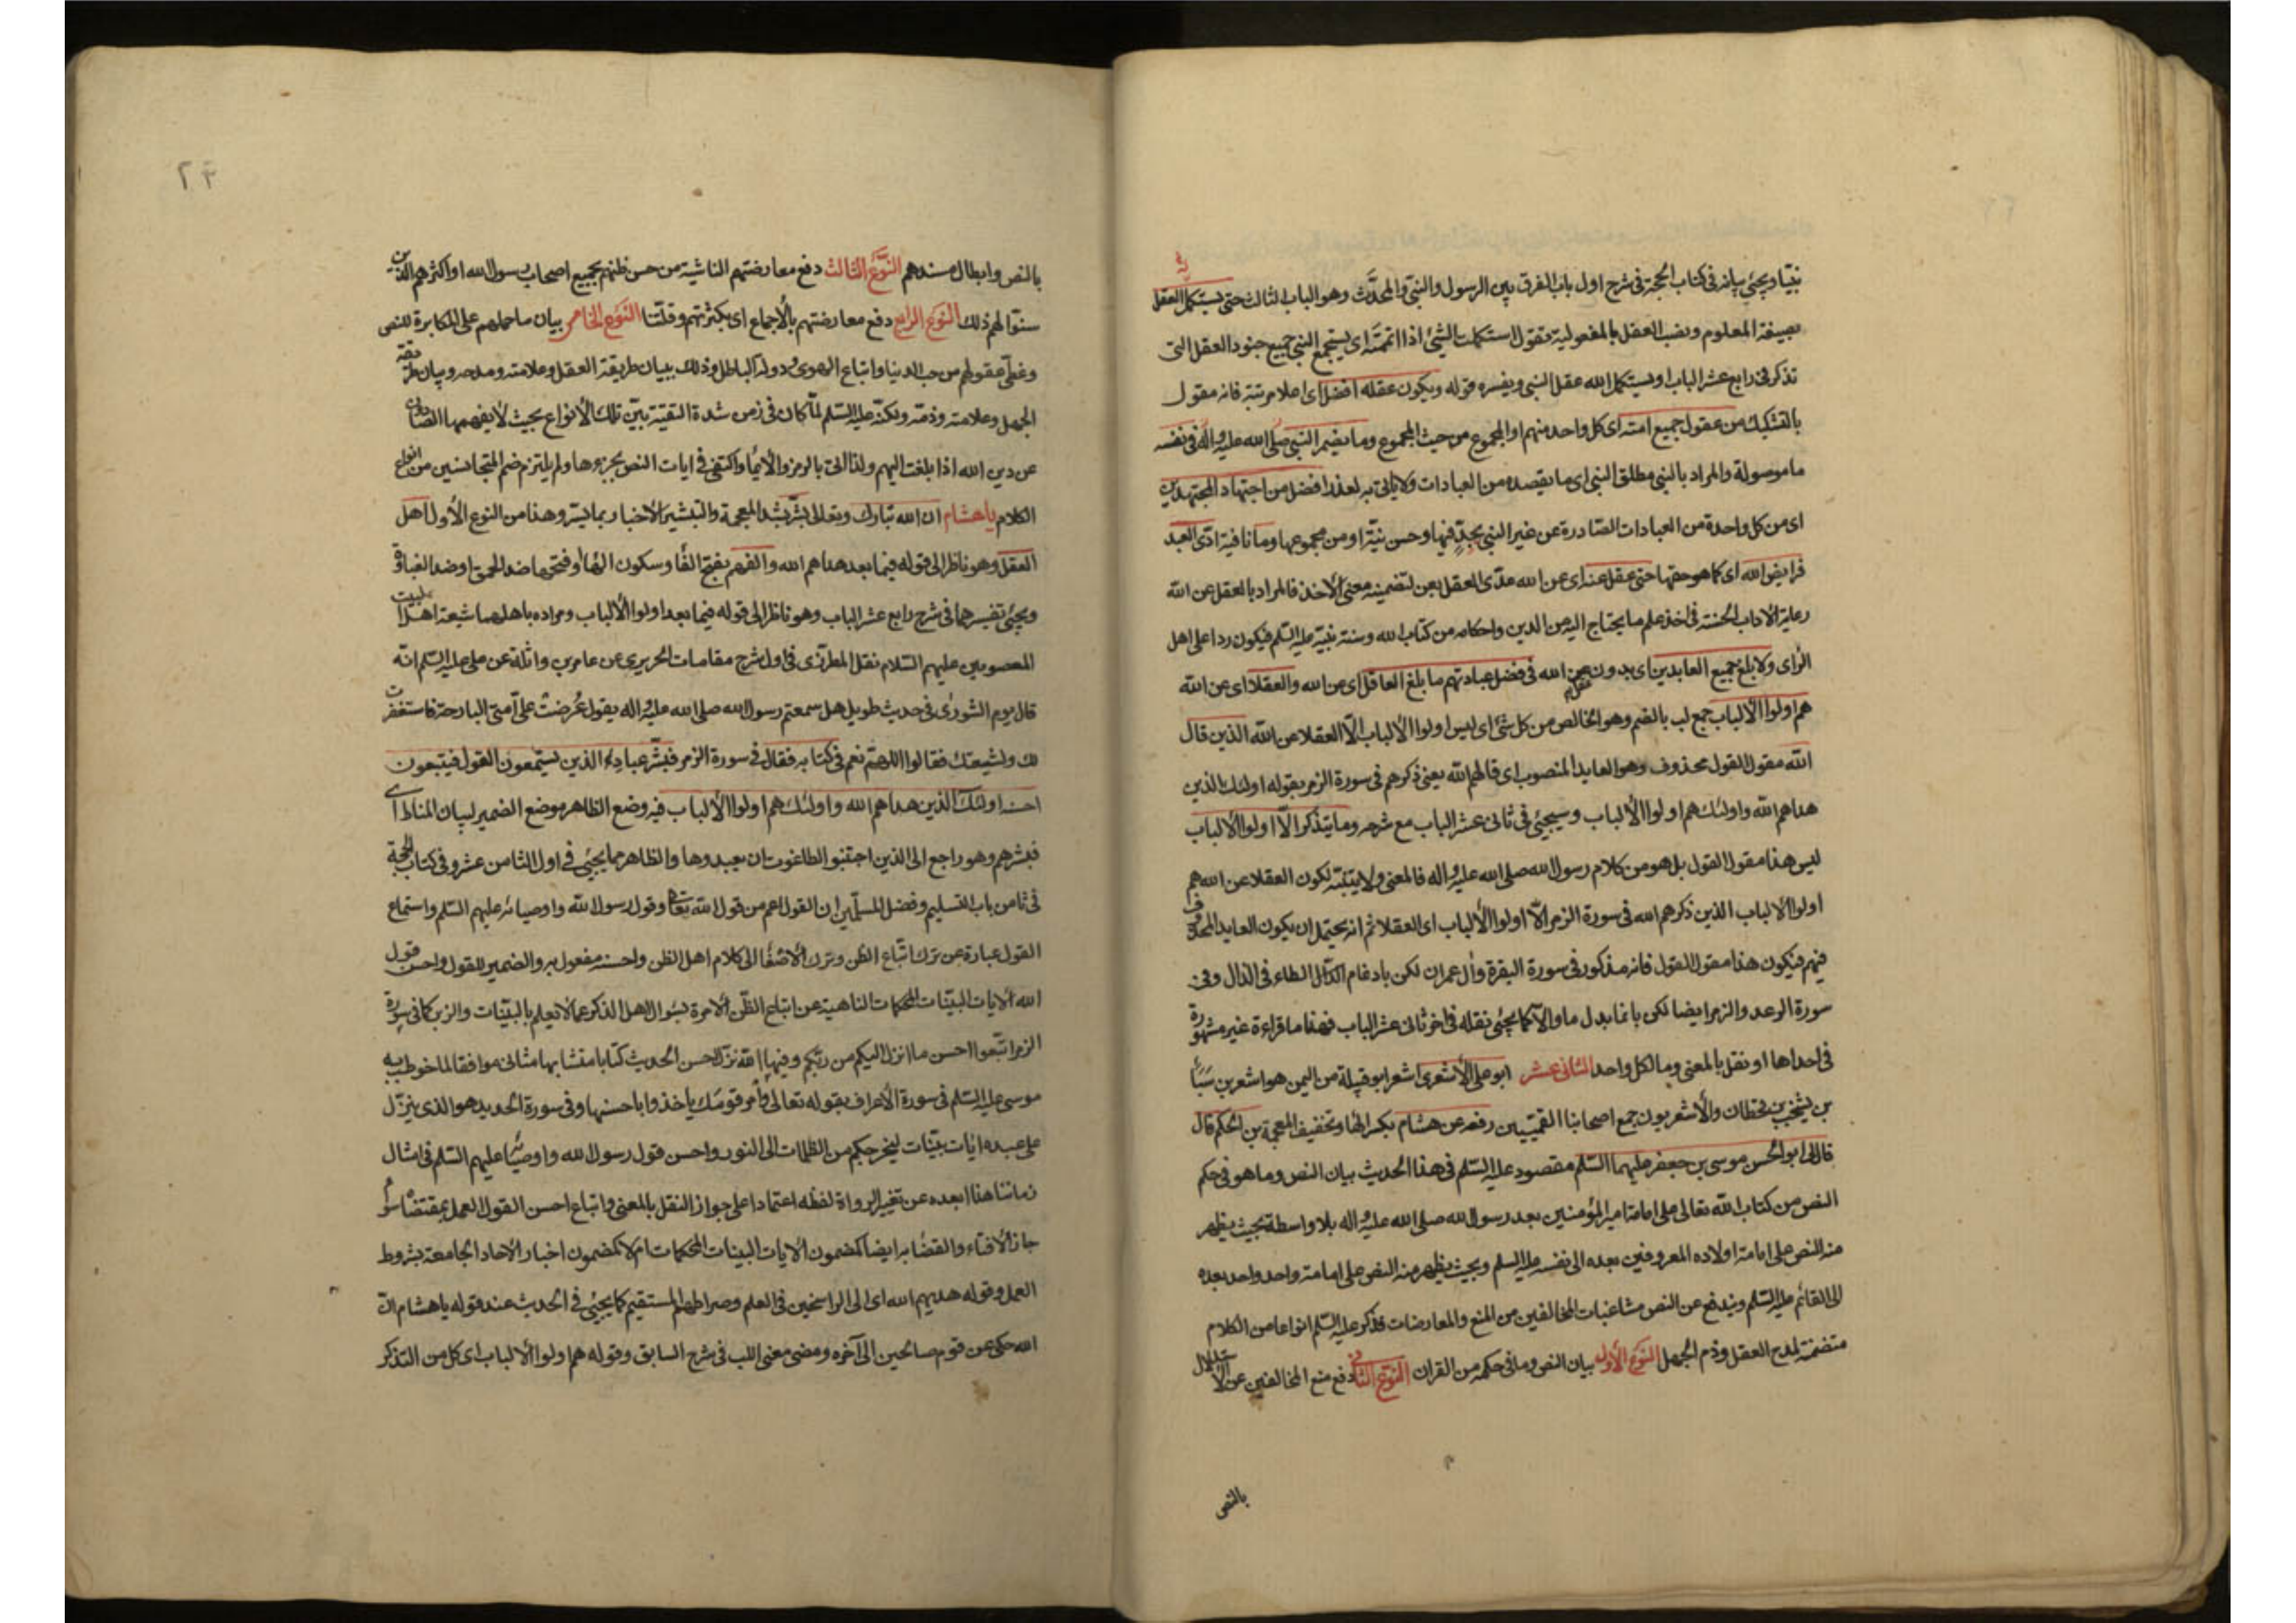 نبيّا ويجئ بيانه في كتاب الحجة في شرح اول باب الفرق بين الرسول والنبيّ والمحدَّث وهو الباب الثالث حتى يستكمل العقل
بصيغة المعلوم ونصب العقل بالمفعولية تقول استكملت الشئ اذا اتممته اى يستجمع النبي جميع جنود العقل التى
تذكر في رابع عشر الباب او يستكمل الله عقل النبي ويفسره قوله ويكون عقله افضل اى اعلا مرتبة فانه مقول
بالتشكيك من عقول جميع امته اى كل واحد منهم او المجموع من حيث المجموع وما يضمر النبي صلى الله عليه واله في نفسه
ما موصولة والمراد بالنبي مطلق النبي اى ما يقصده من العبادات ولا ياتى به لعذر افضل من اجتهاد المجتهدين
اى من كل واحدة من العبادات الصّادرة عن غير النبي بجدٍّ فيها وحسن نيّة او من مجموعها وما نافية ادّى العبد
فرايض الله اى كما هو حقها حتى عقل عنه اى عن الله عدّى العقل بعن لتضمينه معنى الاخذ فالمراد بالعقل عن الله
رعاية الاداب الحسنة في اخذ علم ما يحتاج اليه من الدين واحكامه من كتاب الله وسنة نبيّه عليه السّلم فيكون ردا على اهل
الرأى ولا بلغ جميع العابدين اى بدون عقلهم عن الله في فضل عبادتهم ما بلغ العاقل اى عن الله والعقلا اى عن الله
هم اولوا الألباب جمع لب بالضم وهو الخالص من كل شئ اى ليس اولوا الألباب الّا العقلا عن الله الذين قال
الله مقول القول محذوف وهو العايد المنصوب اى قالهم الله يعنى ذكرهم في سورة الزمر بقوله اولئك الذين
هداهم الله واولئك هم اولوا الألباب وسيجئ في ثانى عشر الباب مع شرحه وما يتذكر الّا اولوا الألباب
ليس هذا مقول القول بل هو من كلام رسول الله صلى الله عليه واله فالمعنى ولا يتنبّه لكون العقلا عن الله هم
اولوا الالباب الذين ذكرهم الله في سورة الزمر الّا اولوا الألباب اى العقلا ثم انه يحتمل ان يكون العايد المحذوف
فيهم فيكون هذا مقول القول فانه مذكور في سورة البقرة وأل عمران لكن بادغام الدال الطاء في الذال وفي
سورة الرعد والزمر ايضا لكن بانما بدل ما والّا كما يجئ نقله في اخر ثانى عشر الباب فهذا ما قراءة غير مشهورة
في احداها او نقل بالمعنى وما لكل واحد الثانى عشر ابو على الأشعرى اشعر ابو قبيلة من اليمن هو اشعر بن سَبَأ
بن يشجب بن قحطان والأشعريون جمع اصحابنا القميّين رفعه عن هشام بكسر الهاء وتخفيف المعجمة بن الحكم قال
قال لى ابو الحسن موسى بن جعفر عليهما السّلم مقصوده عليه السّلم في هذا الحديث بيان النص وما هو في حكم
النص من كتاب الله تعالى على امامة امير المؤمنين بعد رسول الله صلى الله عليه واله بلا واسطة بحيث يظهر
منه النص على امامة اولاده المعروفين بعده الى نفسه عليه السلم وبحيث يظهر منه النص على امامة واحد واحد بعده
الى القائم عليه السّلم ويندفع عن النص مشاغبات المخالفين من المنع والمعارضات فذكر عليه السّلم انواعا من الكلام
متضمنة لمدح العقل وذم الجهل النوع الأول بيان النص وما في حكمه من القران النّوع الثانى دفع منع المخالفين عن الاستدلال
بالنص
٢٣
بالنص وابطال مسندهم النّوع الثالث دفع معارضتهم الناشية من حسن ظنهم بجميع اصحاب رسول الله او اكثرهم الذين
سنّوا لهم ذلك النّوع الرابع دفع معارضتهم بالأجماع اى بكثرتهم وقلّتنا النّوع الخامس بيان ما حملهم على المكابرة للنص
وغطّى عقولهم من حب الدنيا واتباع الهوى ودولة الباطل وذلك ببيان طريقة العقل وعلامته ومدحه وبيان طريقة
الجهل وعلامته وذمّه ولكنّه عليه السّلم لمّا كان في زمن شدة التقيّة بيّن تلك الأنواع بحيث لا يفهمها الصّادون
عن دين الله اذا بلغت اليهم ولذا اتى بالرمز والأيماء واكتفى في ايات النص بجزءها ولم يلتزم ضم المتجانسين من انواع
الكلام يا هشام ان الله تبارك وتعالى بشّر بشد المعجمة والتبشير الأخبار بما يسر وهذا من النوع الأول اهل
العقل وهو ناظر الى قوله فيما بعد هداهم الله والفهم بفتح الفاء وسكون الهاء وفتحها ضد الحمق او ضد الغباوة
ويجئ تفسيرهما في شرح رابع عشر الباب وهو ناظر الى قوله فيما بعد اولوا الألباب ومراده باهلهما شيعة اهل البيت
المعصومين عليهم السّلام نقل المطرّزى في اول شرح مقامات الحريرى عن عامر بن واثلة عن على عليه السّلم انّه
قال يوم الشورى في حديث طويل هل سمعتم رسول الله صلى الله عليه واله يقول عُرضت علىّ امتى البارحة فاستغفرت
لك ولشيعتك فقالوا اللهمّ نعم في كتابه فقال في سورة الزمر فبشّر عبادِ الذين يستمعون القول فيتبعون
احسنه اولئك الذين هداهم الله واولئك هم اولوا الألباب فيه وضع الظاهر موضع الضمير لبيان المناط اى
فبشرهم وهو راجع الى الذين اجتنبوا الطاغوت ان يعبدوها والظاهر مما يجئ في اول الثامن عشر وفي كتاب الحجة
في ثامن باب التسليم وفضل المسلّمين ان القول اعم من قول الله تعالى وقول رسول الله واوصيائه عليهم السّلم واستماع
القول عبارة عن ترك اتّباع الظن وترك الأصغاء الى كلام اهل الظن واحسنه مفعول به والضمير للقول واحسن قول
الله الأيات البيّنات المحكمات الناهية عن اتباع الظّن الأمرة بسؤال اهل الذكر عما لا يعلم بالبيّنات والزبر كما في سورة
الزمر اتّبعوا احسن ما انزل اليكم من ربّكم وفيها الله نزّل احسن الحديث كتابا متشابها مثانى موافقا لما خوطب به
موسى عليه السّلم في سورة الأعراف بقوله تعالى وأمر قومك يأخذوا باحسنها وفي سورة الحديد هو الذى ينزّل
على عبده ايات بيّنات ليخرجكم من الظلمات الى النور واحسن قول رسول الله واوصيائه عليهم السّلم في امثال
زماننا هذا ابعده عن تغيير الرواة لفظه اعتمادا على جواز النقل بالمعنى واتباع احسن القول العمل بمقتضاه سواء
جاز الأفتاء والقضاء به ايضا كمضمون الأيات البينات المحكمات ام لا كمضمون اخبار الأحاد الجامعة بشروط
العمل وقوله هديهم الله اى الى الراسخين في العلم وصراطهم المستقيم كما يجئ في الحديث عند قوله يا هشام انّ
الله حكى عن قوم صالحين الى آخره ومضى معنى اللب في شرح السابق وقوله هم اولوا الألباب اى كل من التذكر